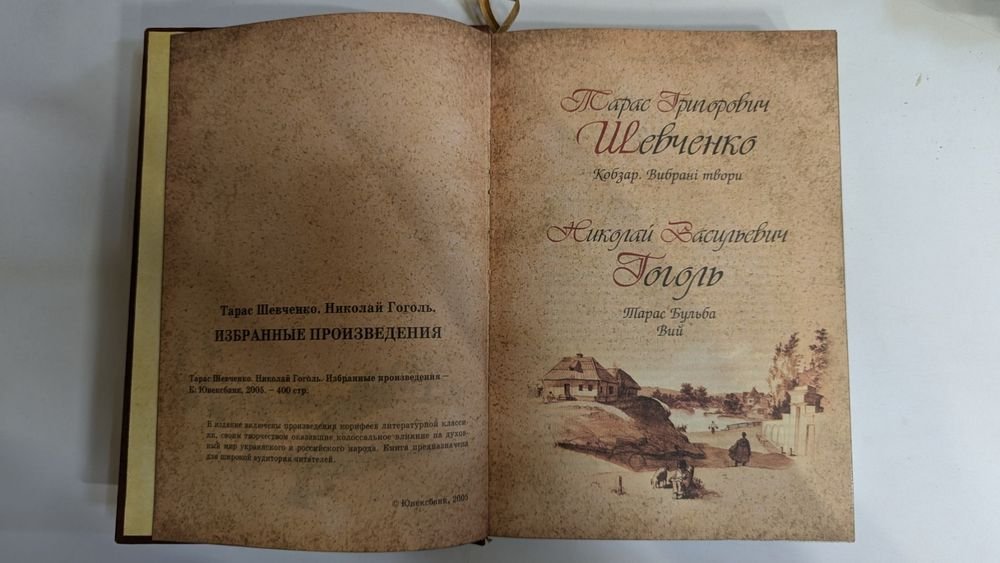 Тарас Шевченко. Николай Гоголь.
ИЗБРАННЫЕ ПРОИЗВЕДЕНИЯ
Тарас Шевченко. Николай Гоголь. Избранные произведения —
К: Юнексбанк, 2005. — 400 стр.
В издание включены произведения корифеев литературной класси-
ки, своим творчеством оказавшие колоссальное влияние на духов-
ный мир украинского и российского народа. Книга предназначена
для широкой аудитории читателей.
© Юнексбанк, 2005
Тарас Григорович
Шевченко
Кобзар. Вибрані твори
Николай Васильевич
Гоголь
Тарас Бульба
Вий